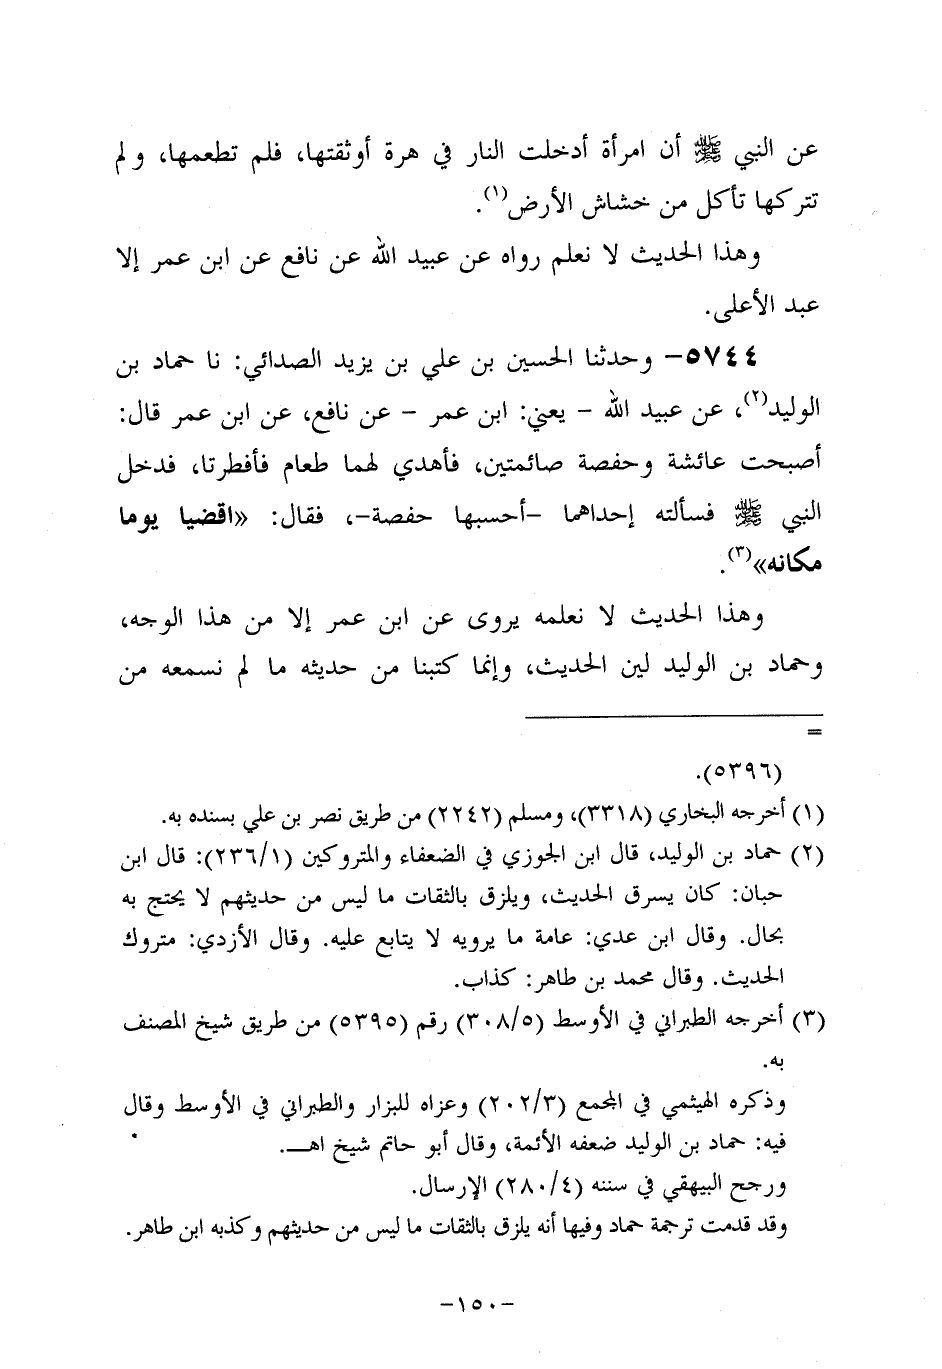 عن النبي ﷺ أن امرأة أدخلت النار في هرة أوثقتها، فلم تطعمها، ولم
تتركها تأكل من خشاش الأرض(١).
وهذا الحديث لا نعلم رواه عن عبيد الله عن نافع عن ابن عمر إلا
عبد الأعلى.
٥٧٤٤- وحدثنا الحسين بن علي بن يزيد الصدائي: نا حماد بن
الوليد(٢)، عن عبيد الله - يعني: ابن عمر - عن نافع، عن ابن عمر قال:
أصبحت عائشة وحفصة صائمتين، فأهدي لهما طعام فأفطرتا، فدخل
النبي ﷺ فسألته إحداهما -أحسبها حفصة-، فقال: «اقضيا يوما
مكانه»(٣).
وهذا الحديث لا نعلمه يروى عن ابن عمر إلا من هذا الوجه،
وحماد بن الوليد لين الحديث، وإنما كتبنا من حديثه ما لم نسمعه من
=
(٥٣٩٦).
(١) أخرجه البخاري (٣٣١٨)، ومسلم (٢٢٤٢) من طريق نصر بن علي بسنده به.
(٢) حماد بن الوليد، قال ابن الجوزي في الضعفاء والمتروكين (٢٣٦/١): قال ابن
حبان: كان يسرق الحديث، ويلزق بالثقات ما ليس من حديثهم لا يحتج به
بحال. وقال ابن عدي: عامة ما يرويه لا يتابع عليه. وقال الأزدي: متروك
الحديث. وقال محمد بن طاهر: كذاب.
(٣) أخرجه الطبراني في الأوسط (٣٠٨/٥) رقم (٥٣٩٥) من طريق شيخ المصنف
به.
وذكره الهيثمي في المجمع (٢٠٢/٣) وعزاه للبزار والطبراني في الأوسط وقال
فيه: حماد بن الوليد ضعفه الأئمة، وقال أبو حاتم شيخ اهـ.
ورجح البيهقي في سننه (٢٨٠/٤) الإرسال.
وقد قدمت ترجمة حماد وفيها أنه يلزق بالثقات ما ليس من حديثهم وكذبه ابن طاهر.
-١٥٠-